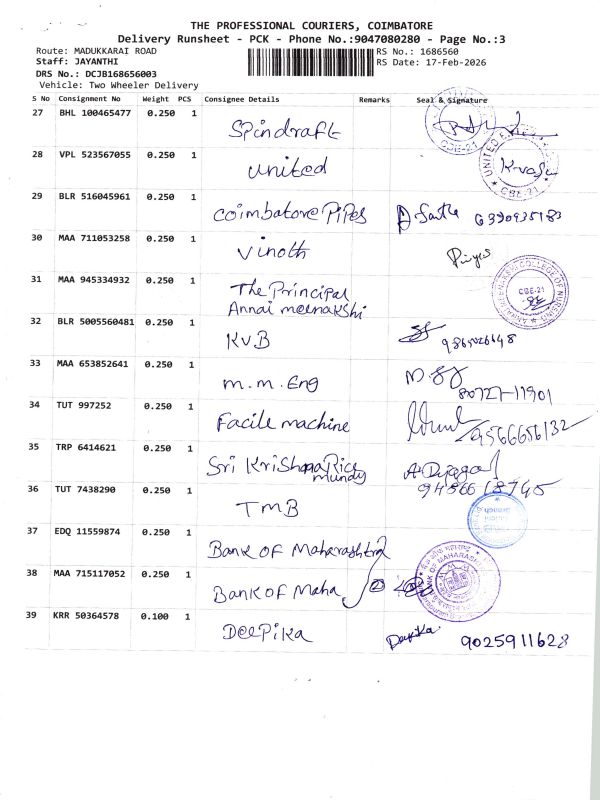 THE PROFESSIONAL COURIERS, COIMBATORE
Delivery Runsheet - PCK - Phone No.:9047080280 - Page No.:3
Route: MADUKKARAI ROAD
RS No.: 1686560
Staff: JAYANTHI
RS Date: 17-Feb-2026
DRS No.: DCJB168656003
Vehicle: Two Wheeler Delivery
S No Consignment No Weight PCS Consignee Details Remarks Seal & Signature
27 BHL 100465477 0.250 1
Spindraft
CBE-21
28 VPL 523567055 0.250 1
united
UNITED
CBE-21
29 BLR 516045961 0.250 1
Coimbatore Pipes
30 MAA 711053258 0.250 1
Vinoth
31 MAA 945334932 0.250 1
The Principal
Annai meenakshi
COLLEGE OF NURSING
CBE-21
32 BLR 5005560481 0.250 1
KVB
33 MAA 653852641 0.250 1
m.m. Eng
80727-11901
34 TUT 997252 0.250 1
Facile machine
9566656132
35 TRP 6414621 0.250 1
Sri Krishna Rice
mundy
36 TUT 7438290 0.250 1
TMB
37 EDQ 11559874 0.250 1
Bank of Maharashtra
38 MAA 715117052 0.250 1
Bank of Maha
BANK OF MAHARASHTRA
39 KRR 50364578 0.100 1
Deepika
Deepika
9025911628